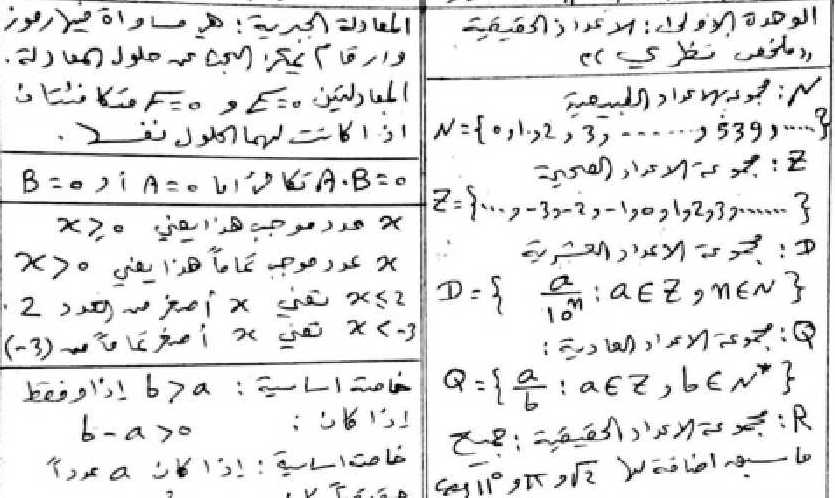 الوحدة الأولى: الاعداد الحقيقية
"ملخص نظري"
N: مجموعة الاعداد الطبيعية
N={0,1,2,3,.......,539,....}
Z: مجموعة الاعداد الصحيحة
Z={...,-3,-2,-1,0,1,2,3,......}
D: مجموعة الاعداد العشرية
D={ a/10ⁿ : a∈Z, n∈N }
Q: مجموعة الاعداد العادية:
Q={ a/b : a∈Z, b∈N* }
R: مجموعة الاعداد الحقيقية: جميع
ما سبق اضافة لـ √2 و π و
المعادلة الجبرية: هي مساواة فيها رموز
وارقام يمكن البحث عن حلول المعادلة.
المعادلتين E=0 و F=0 متكافئتان
اذا كانت لهما الحلول نفسها.
A.B=0 تكافئ اما A=0 أو B=0
x عدد موجب هذا يعني x≥0
x عدد موجب تماماً هذا يعني x>0
x≤2 تعني x أصغر من العدد 2.
x<-3 تعني x أصغر تماماً من (-3)
خاصة اساسية: b>a إذا وفقط
إذا كان:
b-a>0
خاصة اساسية: إذا كان a عدداً